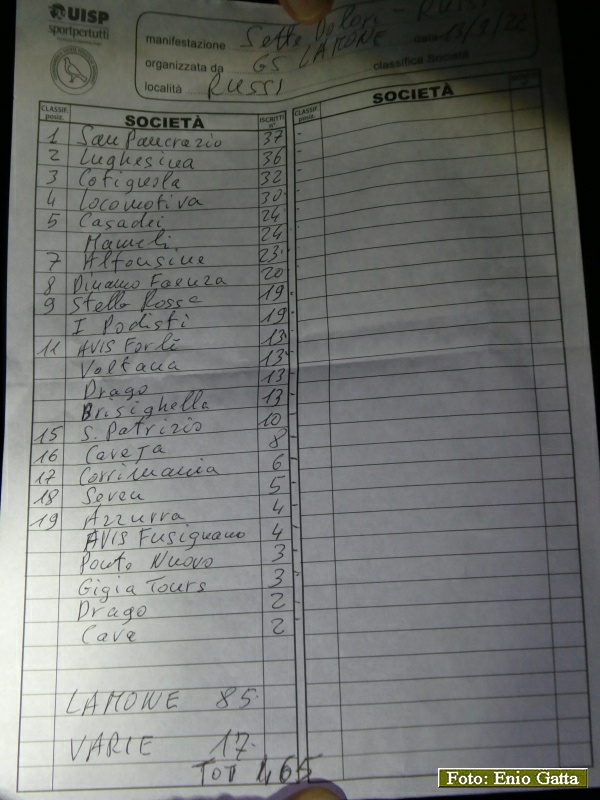 UISP
sportpertutti
manifestazione Sette Dolori - RUSSI
organizzata da GS LAMONE data 13/9/22
località RUSSI classifica Società
CLASSIF. posiz. SOCIETÀ ISCRITTI n° CLASSIF. posiz. SOCIETÀ
1 San Pancrazio 37
2 Lughesina 36
3 Cotignola 32
4 Locomotiva 30
5 Casadei 24
Mameli 24
7 Alfonsine 23
8 Dinamo Faenza 20
9 Stella Rossa 19
I Podisti 19
11 AVIS Forlì 13
Voltana 13
Drago 13
Brisighella 13
15 S. Patrizio 10
16 Caveja 8
17 Corrimania 6
18 Seven 5
19 Azzurra 4
AVIS Fusignano 4
Ponte Nuovo 3
Gigia Tours 3
Drago 2
Cave 2
LAMONE 85
VARIE 17
TOT 465
Foto: Enio Gatta